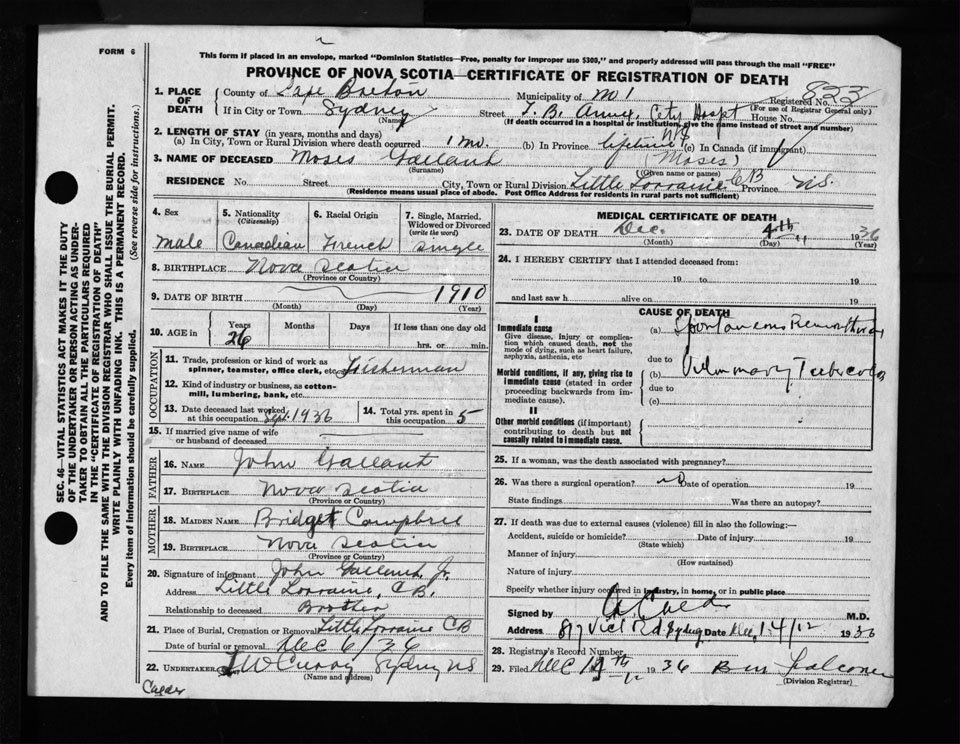 FORM 6
This form if placed in an envelope, marked "Dominion Statistics—Free, penalty for improper use $300," and properly addressed will pass through the mail "FREE"
PROVINCE OF NOVA SCOTIA—CERTIFICATE OF REGISTRATION OF DEATH
833
1. PLACE OF DEATH
County of Cape Breton Municipality of Registered No.
(For use of Registrar General only)
If in City or Town Sydney Street T. B. Annex City Hospt House No.
(Name) (If death occurred in a hospital or institution, give the name instead of street and number)
2. LENGTH OF STAY (in years, months and days)
(a) In City, Town or Rural Division where death occurred 1 mo. (b) In Province lifetime (c) In Canada (if immigrant)
3. NAME OF DECEASED Moses Gallant (Moses)
(Surname) (Given name or names)
RESIDENCE No. Street City, Town or Rural Division Little Lorraine CB Province N.S.
(Residence means usual place of abode. Post Office Address for residents in rural parts not sufficient)
4. Sex
Male
5. Nationality
(Citizenship)
Canadian
6. Racial Origin
French
7. Single, Married, Widowed or Divorced
(write the word)
Single
8. BIRTHPLACE Nova Scotia
(Province or Country)
9. DATE OF BIRTH 1910
(Month) (Day) (Year)
10. AGE in Years Months Days If less than one day old
26 hrs. or min.
OCCUPATION
11. Trade, profession or kind of work as
spinner, teamster, office clerk, etc. Fisherman
12. Kind of industry or business, as cotton-
mill, lumbering, bank, etc.
13. Date deceased last worked
at this occupation Sept. 1936
14. Total yrs. spent in
this occupation 5
15. If married give name of wife
or husband of deceased
FATHER
16. NAME John Gallant
17. BIRTHPLACE Nova Scotia
(Province or Country)
MOTHER
18. MAIDEN NAME Bridget Campbell
19. BIRTHPLACE Nova Scotia
(Province or Country)
20. Signature of informant John Gallant Jr.
Address Little Lorraine, C.B.
Relationship to deceased Brother
21. Place of Burial, Cremation or Removal Little Lorraine CB
Date of burial or removal Dec 6/36
22. UNDERTAKER Curry Sydney NS
(Name and address)
Calder
MEDICAL CERTIFICATE OF DEATH
23. DATE OF DEATH Dec. 4th 1936
(Month) (Day) (Year)
24. I HEREBY CERTIFY that I attended deceased from:
19 to 19
and last saw h alive on 19
CAUSE OF DEATH
I
Immediate cause
Give disease, injury or complication which caused death, not the mode of dying, such as heart failure, asphyxia, asthenia, etc
(a) Spontaneous Pneumothorax
due to
Morbid conditions, if any, giving rise to immediate cause (stated in order proceeding backwards from immediate cause).
(b) Pulmonary Tuberculosis
due to
(c)
II
Other morbid conditions (if important) contributing to death but not causally related to immediate cause.
25. If a woman, was the death associated with pregnancy?
26. Was there a surgical operation? no Date of operation 19
State findings Was there an autopsy?
27. If death was due to external causes (violence) fill in also the following:—
Accident, suicide or homicide? Date of injury 19
(State which)
Manner of injury
(How sustained)
Nature of injury
Specify whether injury occurred in industry, in home, or in public place
Signed by Calder M.D.
Address 817 Vict Rd. Sydney Date Dec. 1936
28. Registrar's Record Number
29. Filed Dec 1936 Falconer
(Division Registrar)
SEC. 46—VITAL STATISTICS ACT MAKES IT THE DUTY
OF THE UNDERTAKER OR PERSON ACTING AS UNDER-
TAKER TO OBTAIN ALL THE PARTICULARS REQUIRED
IN THE "CERTIFICATE OF REGISTRATION OF DEATH"
AND TO FILE THE SAME WITH THE DIVISION REGISTRAR WHO SHALL ISSUE THE BURIAL PERMIT.
WRITE PLAINLY WITH UNFADING INK. THIS IS A PERMANENT RECORD.
Every item of information should be carefully supplied. (See reverse side for instructions.)